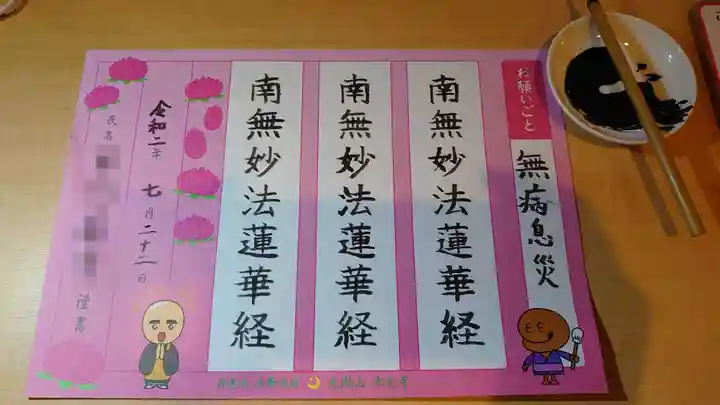 お願いごと
無病息災
南無妙法蓮華経
南無妙法蓮華経
南無妙法蓮華経
令和二年 七月二十二日
氏名
謹書